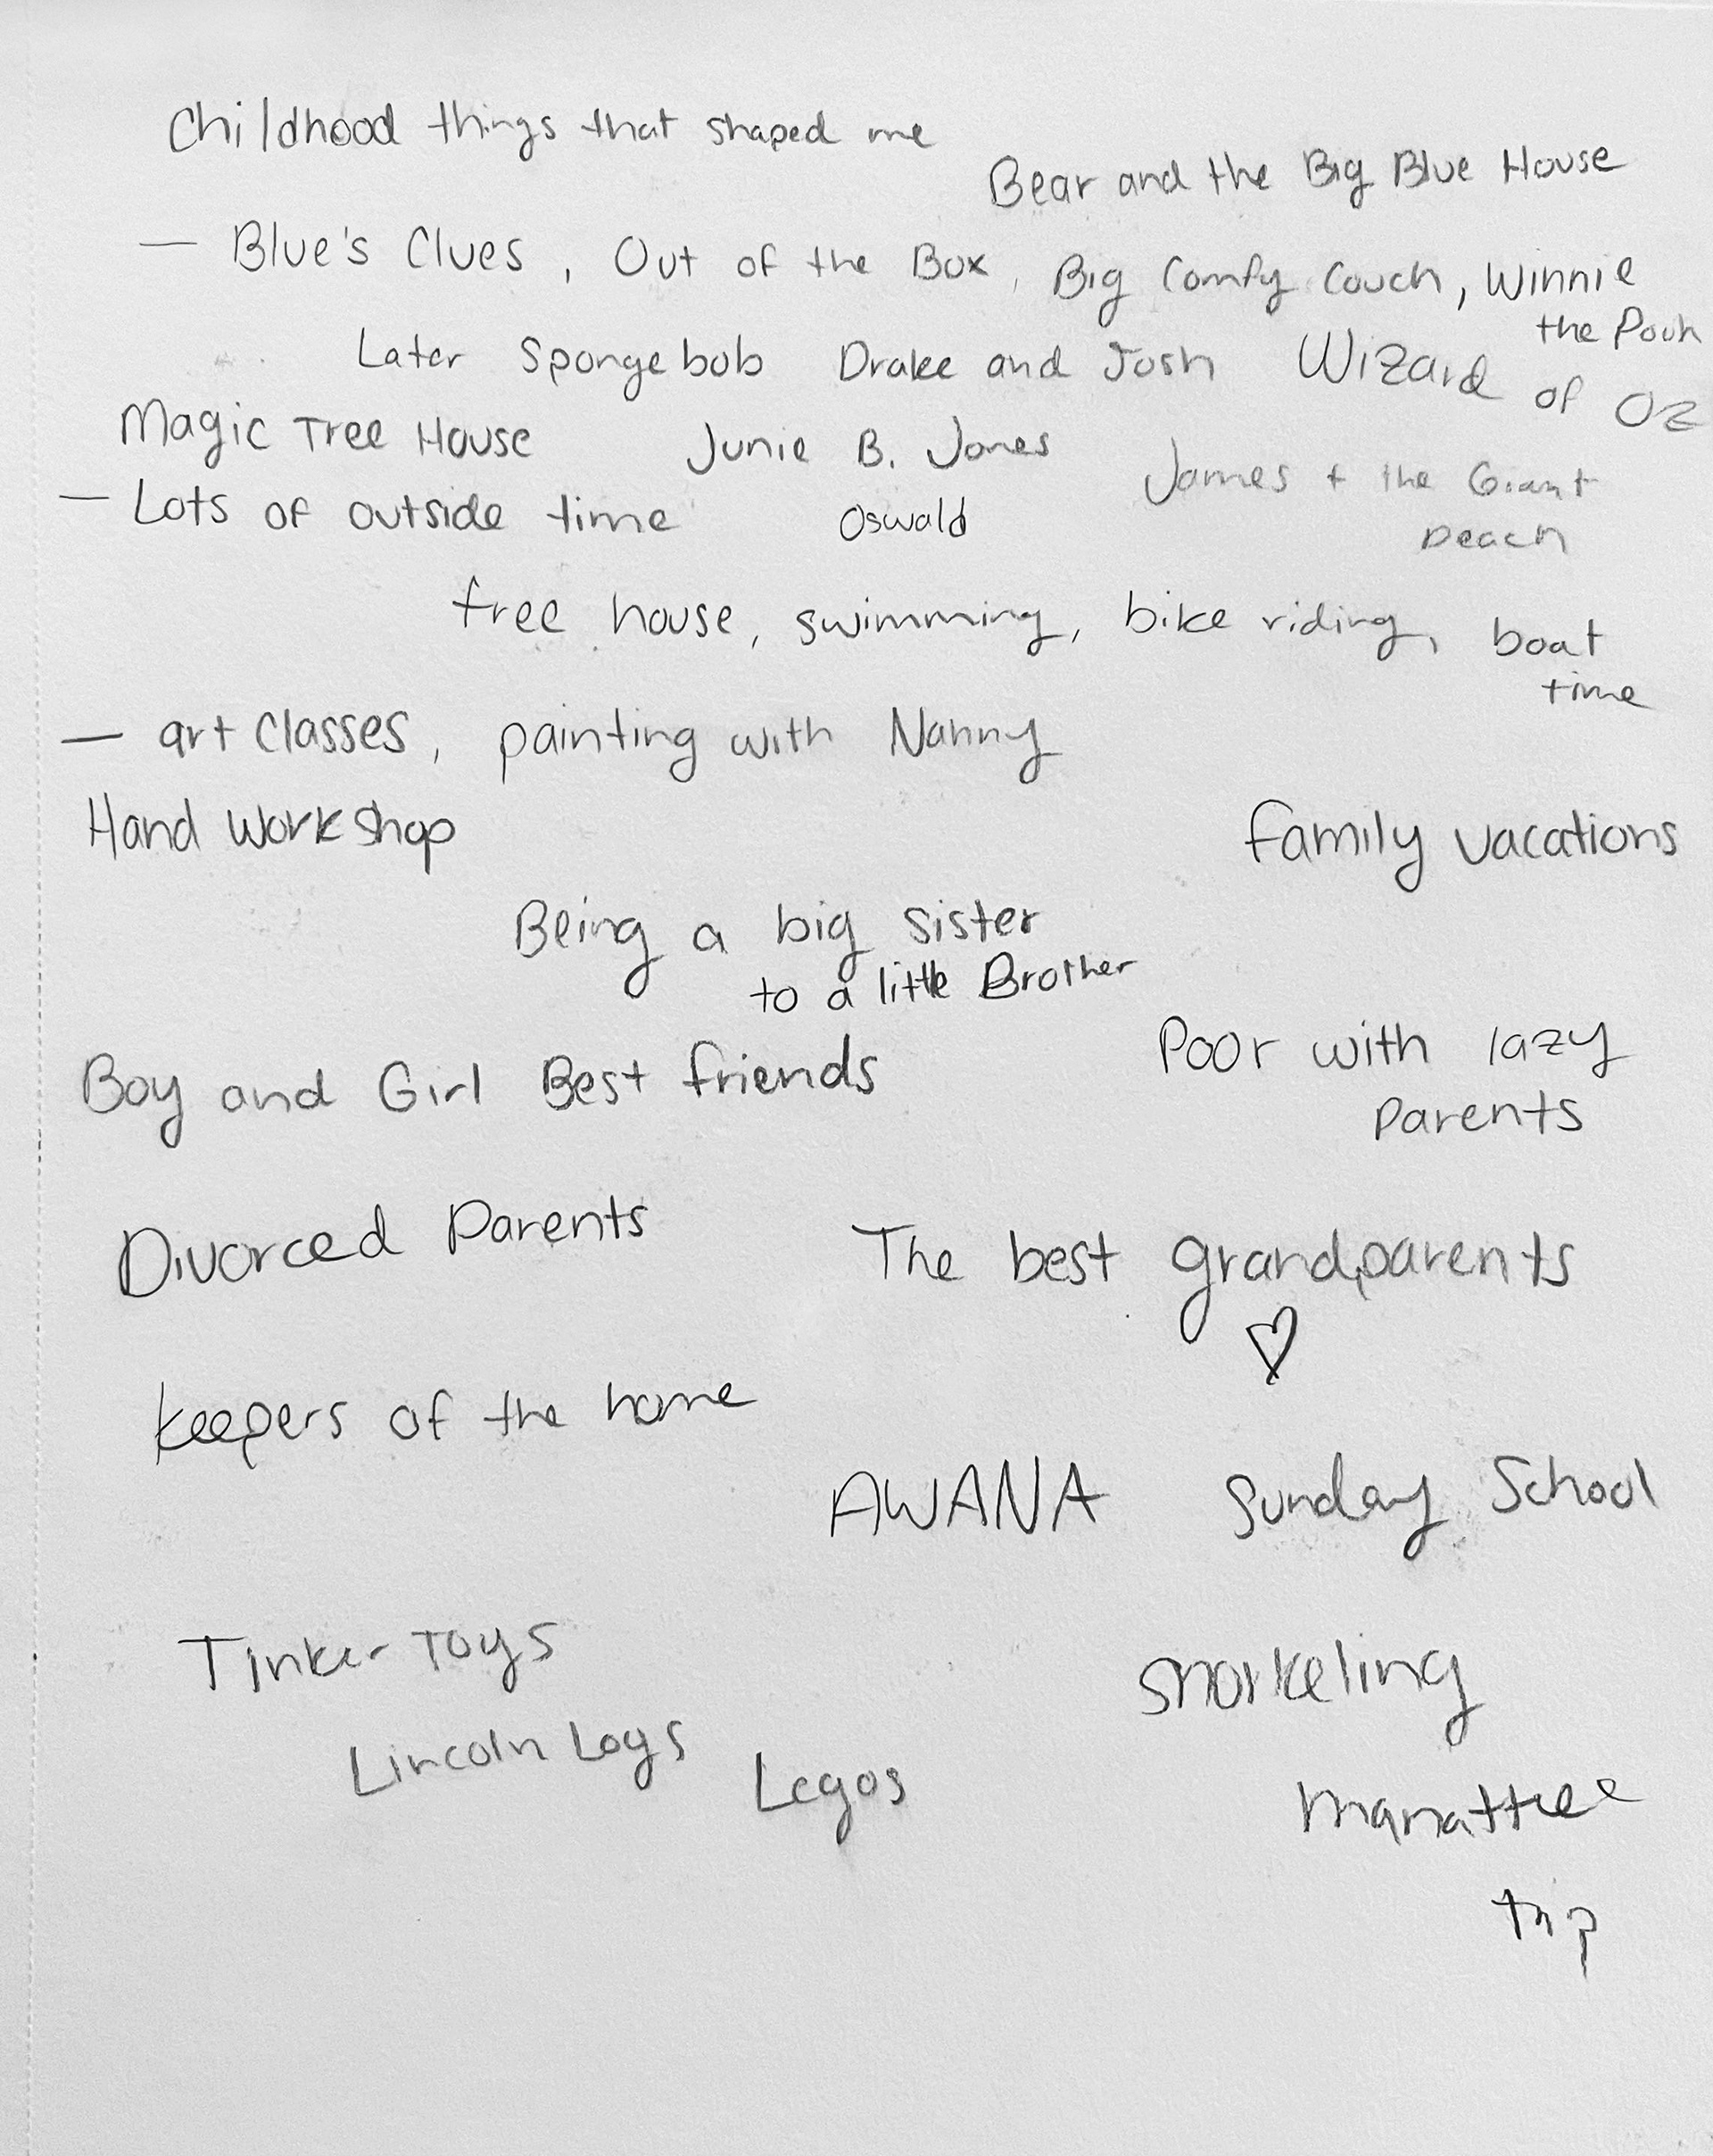 Childhood things that shaped me
Bear and the Big Blue House
— Blue's Clues, Out of the Box, Big Comfy Couch, Winnie
the Pooh
Later Spongebob Drake and Josh Wizard of Oz
Magic Tree House Junie B. Jones
James + the Giant
Peach
— Lots of outside time Oswald
tree house, swimming, bike riding, boat
time
— art classes, painting with Nanny
Hand Workshop
family vacations
Being a big sister
to a little Brother
Boy and Girl Best friends
Poor with lazy
parents
Divorced Parents
The best grandparents
♡
keepers of the home
AWANA Sunday School
Tinker Toys
Snorkeling
Lincoln Logs
Legos
manattee
trip